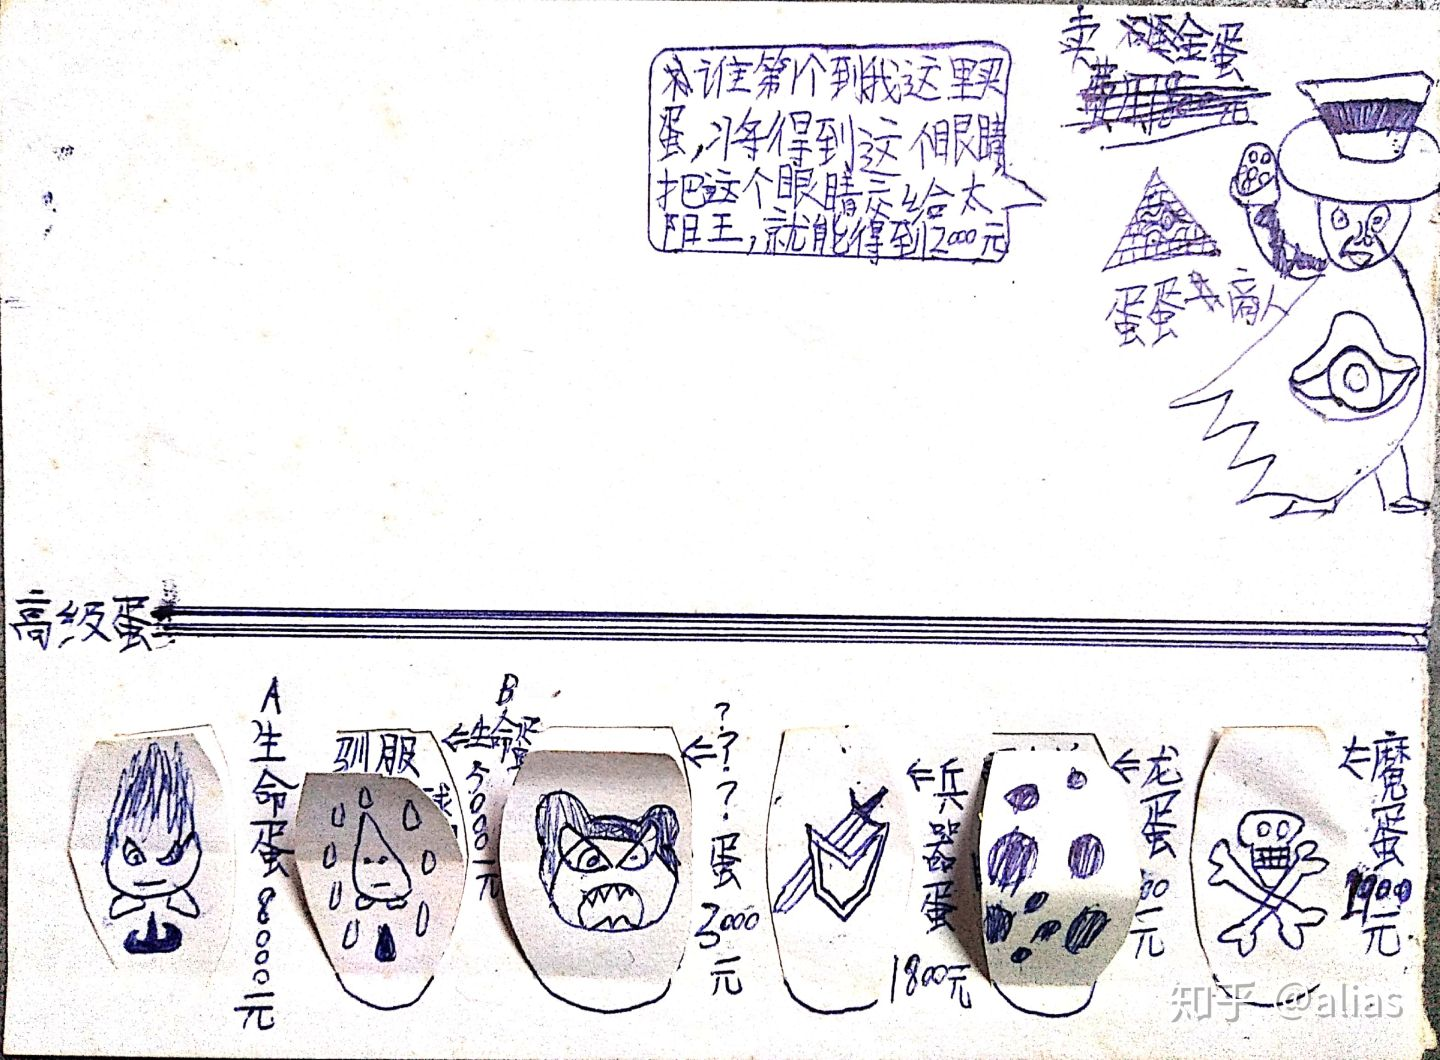 卖金蛋
谁第1个到我这里买
蛋,将得到这个眼睛
把这个眼睛交给太
阳王,就能得到2000元
蛋蛋大商人
高级蛋
A生命蛋8000元
驯服
B生命蛋5000元
????蛋3000元
兵器蛋1800元
龙蛋 00元
魔蛋1900元
知乎 @alias